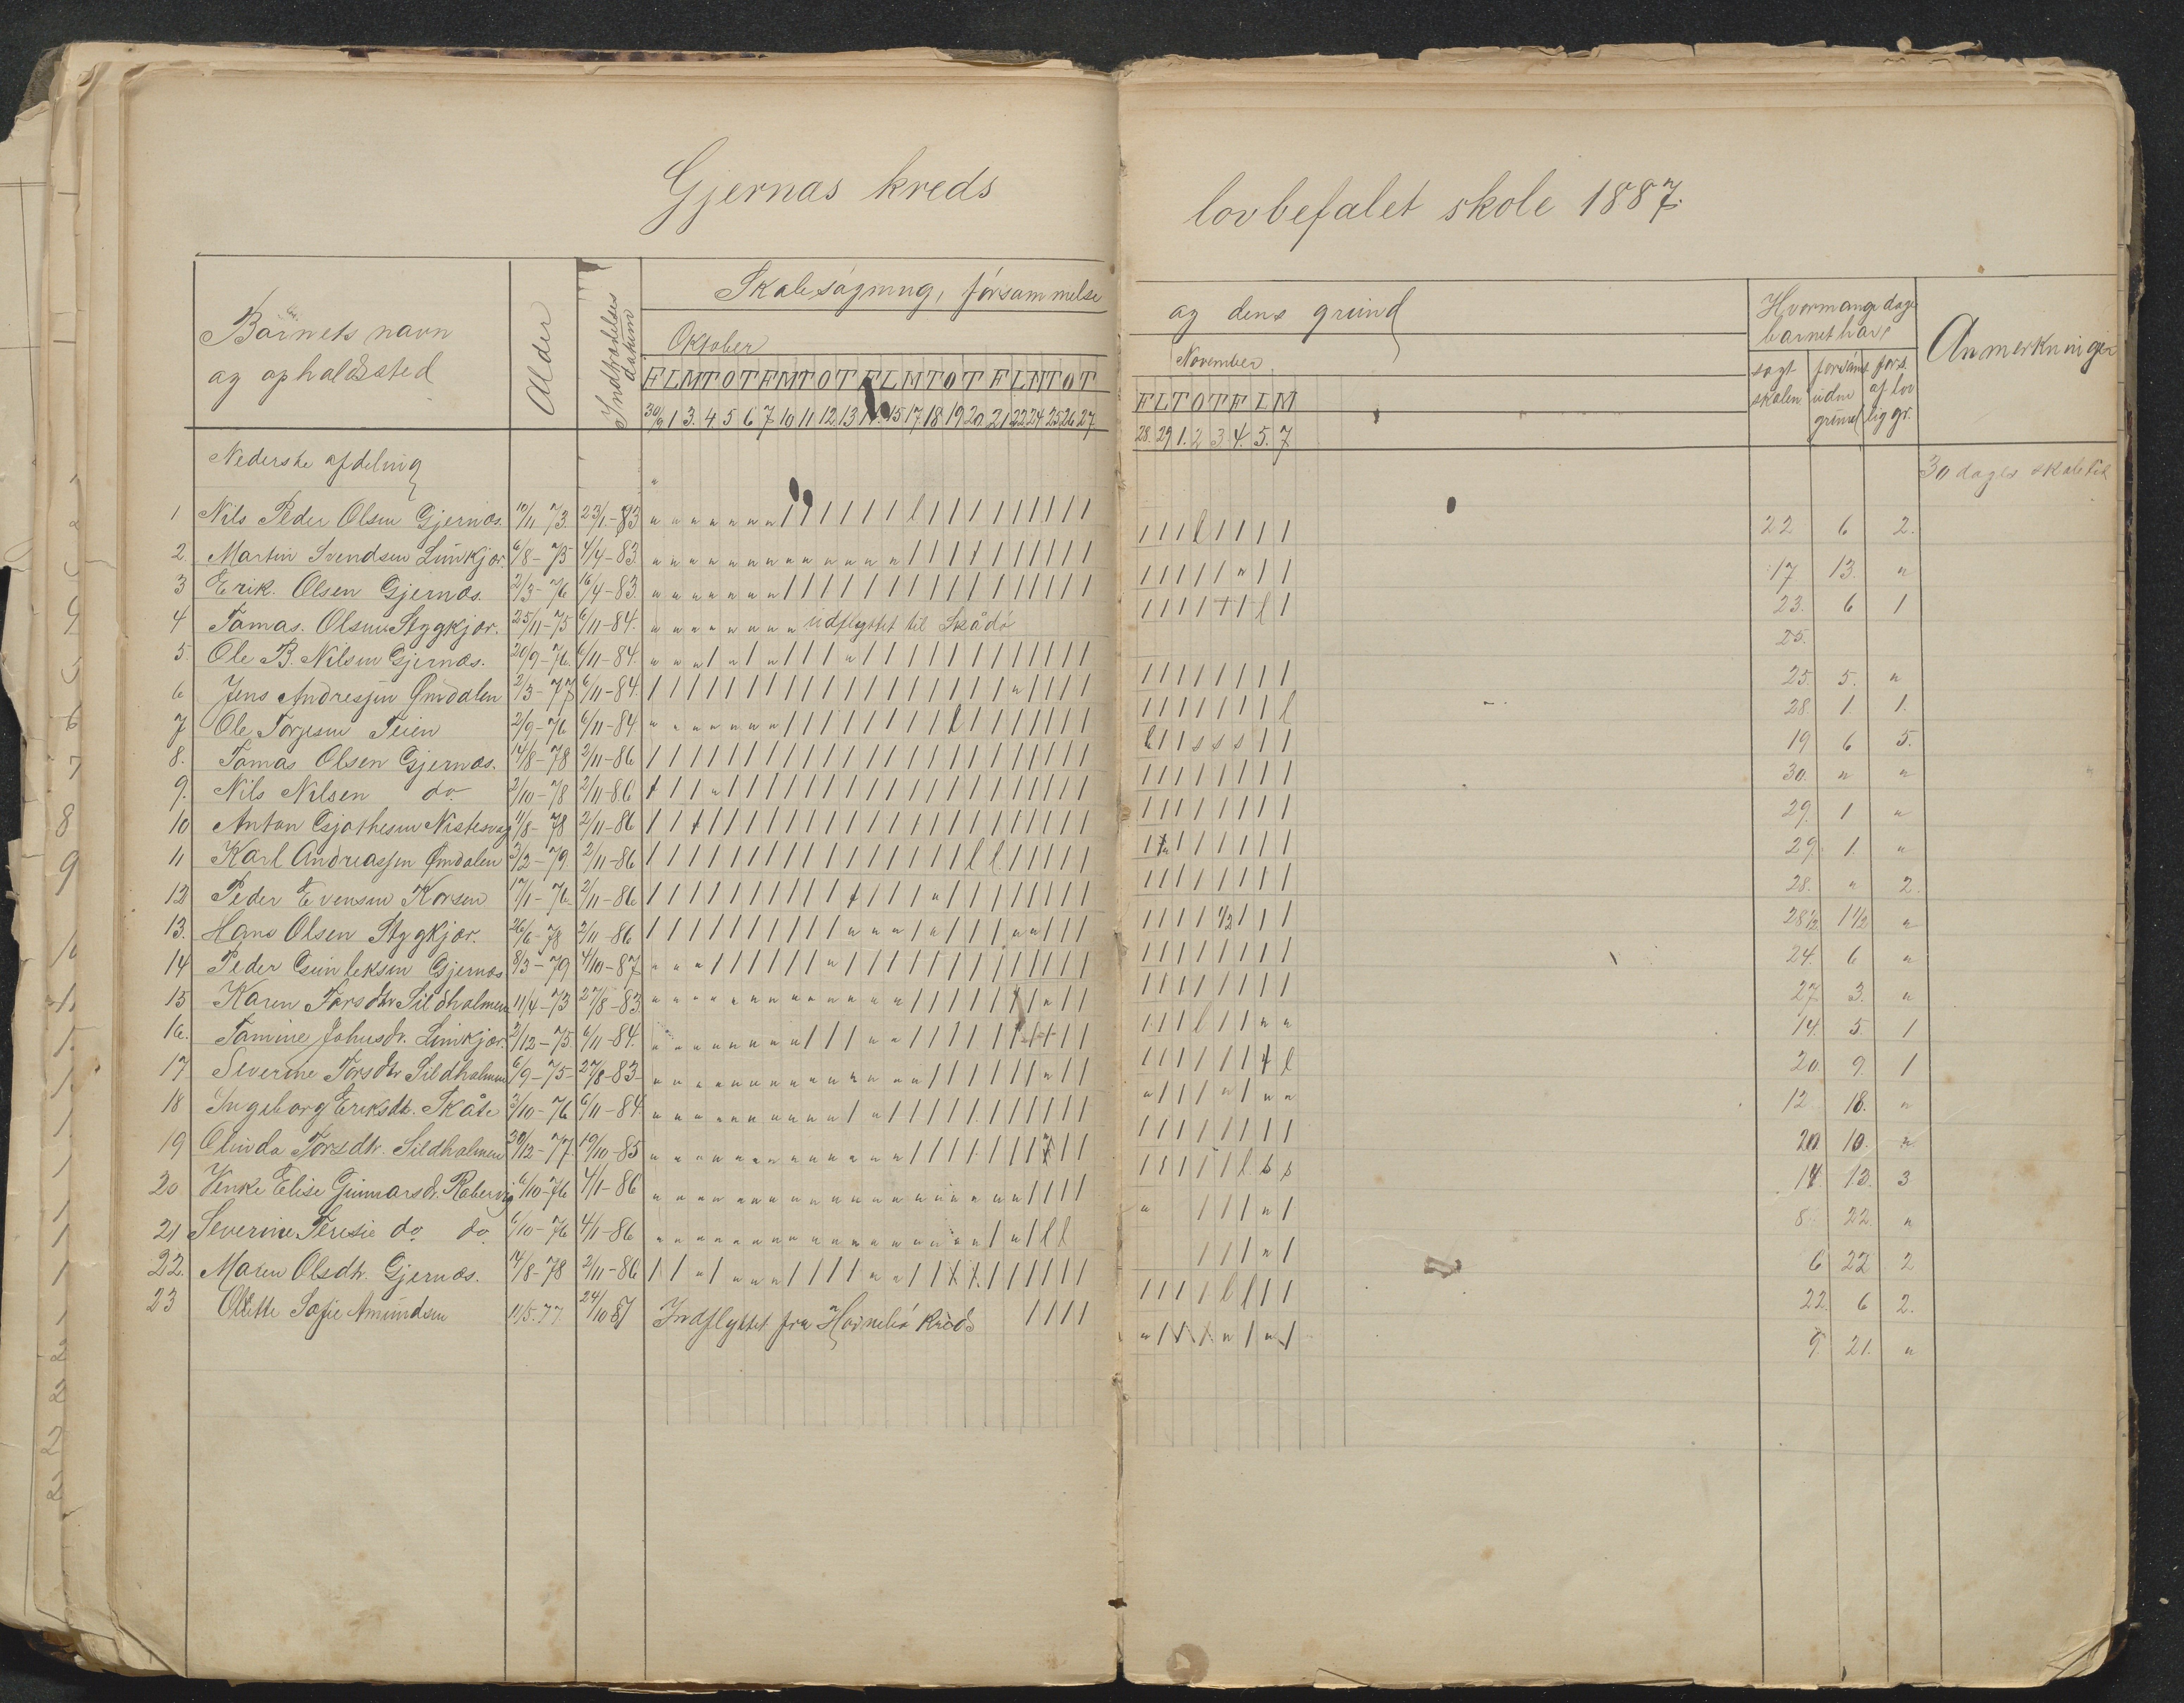 Gjernæs kreds
lovbefalet skole 1887.
Barnets navn
og opholdssted
Alder
Indtrædelses
datum
Skolesøgning, forsømmelse
og dens grund
Oktober
F L M T O T F M T O T F L M T O T F L M T O T
30/9 1 3. 4. 5 6 7 10 11 12. 13 14. 15 17. 18 19 20. 21 22 24 25 26 27
November
F L T O T F L M
28. 29 1. 2 3. 4. 5. 7
Hvormange dage
barnet har
søgt skolen
forsømt uden grund
fors. af lovlig gr.
Anmerkninger
Nederste afdeling
30 dages skoletid
1 Nils Peder Olsen Gjernæs. 10/11 73. 23/1-83 22 6 2.
2. Martin Svendsen Linkjær. 6/8-75 4/4-83. 17 13. "
3 Erik. Olsen Gjernæs. 2/3-76 16/4-83. 23. 6 1
4 Tomas. Olsen Styggkjær. 25/11-75 6/11-84. udflyttet til Skådø 25.
5. Ole B. Nilsen Gjernæs. 20/9-76. 6/11-84. 25. 5. "
6 Jens Andreasen Ømdalen 2/3-77 6/11-84. 28. 1 1.
7 Ole Torjesen Teien 2/9-76 6/11-84 19 6 5.
8. Tomas Olsen Gjernæs. 14/8-78 2/11-86 30. " "
9. Nils Nilsen do. 2/10-78 2/11-86 29. 1 "
10 Anton 11/8-78 2/11-86 29. 1. "
11 Karl Andreassen Ømdalen 3/2-79 2/11-86 28. " 2.
12 Peder Evensen Korsen 17/1-76 2/11-86 28 1/2 1 1/2 "
13. Hans Olsen Styggkjær. 26/6-78 2/11-86 24. 6 "
14 Peder Gunleksen Gjernæs 8/3-79 4/10-87 27 3. "
15 Karen Torsdtr Sildholmen 11/4-73 27/8-83. 14. 5 1
16. Tomine Johnsdr. Linkjær. 2/12-75. 6/11-84. 20. 9. 1
17 Severine Torsdtr Sildholmen 6/9-75- 27/8-83 12. 18. "
18 Ingeborg Eriksdtr. Skåte 3/10-76 6/11-84 20 10. "
19 Olinda Torsdtr. Sildholmen 30/12-77. 19/10-85 14. 13. 3
20 Venke Elise Gunnarsdr. Robervig 6/10-76 4/1-86 8. 22. "
21 Severine Teresie do do 6/10-76 4/1-86 6 22 2
22. Maren Olsdtr. Gjernæs. 14/8-78 2/11-86 22. 6 2.
23 Olette Sofie Amundsen 11/5.77 24/10 87 Indflyttet fra Kreds 9. 21. "